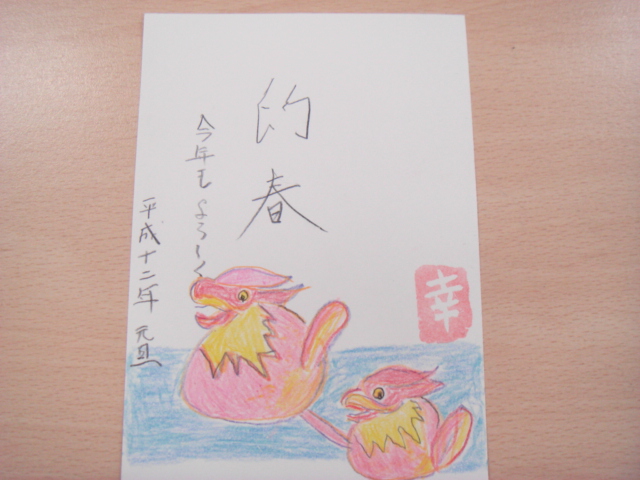 春
今年もよろしく
平成十二年 元旦
幸